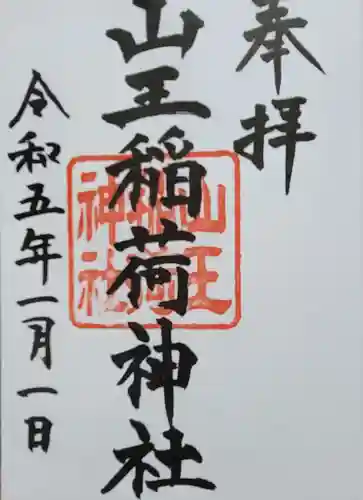 奉拝
山王稲荷神社
山王
稲荷
神社
令和五年一月一日